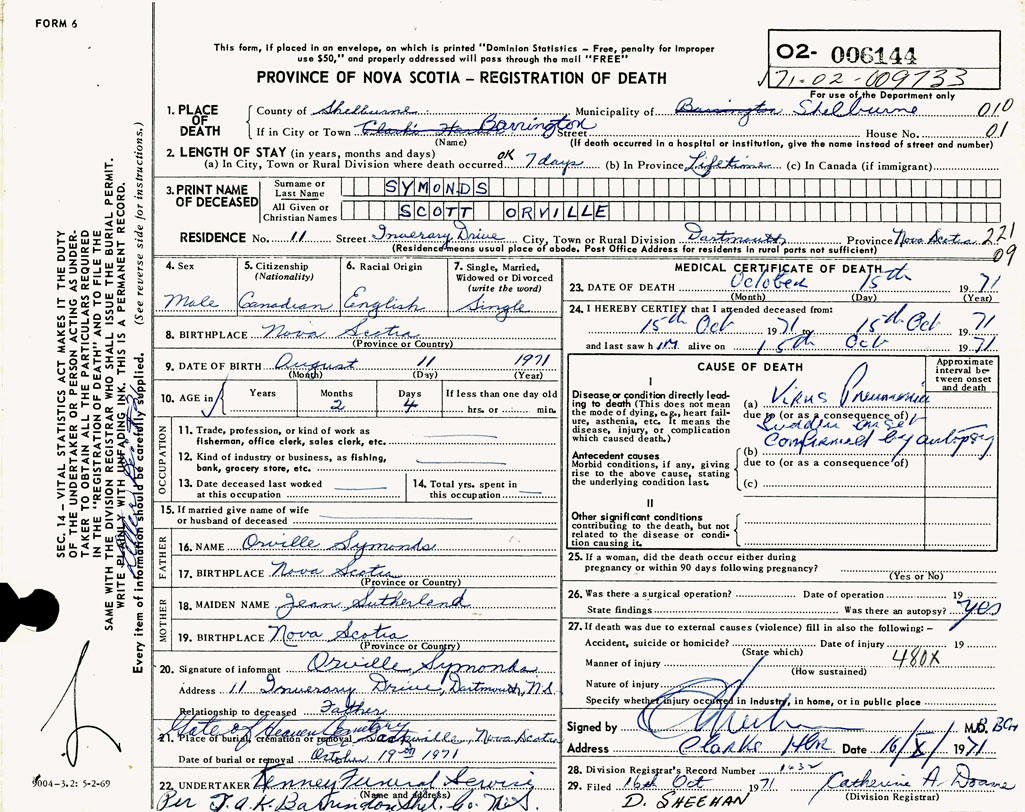 FORM 6
This form, if placed in an envelope, on which is printed "Dominion Statistics – Free, penalty for improper
use $50," and properly addressed will pass through the mail "FREE"
PROVINCE OF NOVA SCOTIA – REGISTRATION OF DEATH
02- 006144
71-02-009733
For use of the Department only
1. PLACE OF DEATH
County of Shelburne Municipality of Barrington Shelburne 010
If in City or Town Clarks Har Barrington Street House No. 01
(Name) (If death occurred in a hospital or institution, give the name instead of street and number)
2. LENGTH OF STAY (in years, months and days)
(a) In City, Town or Rural Division where death occurred OK 7 days (b) In Province Lifetime (c) In Canada (if immigrant)
3. PRINT NAME OF DECEASED
Surname or Last Name SYMONDS
All Given or Christian Names SCOTT ORVILLE
RESIDENCE No. 11 Street Inverary Drive City, Town or Rural Division Dartmouth Province Nova Scotia 221
(Residence means usual place of abode. Post Office Address for residents in rural parts not sufficient) 09
4. Sex Male
5. Citizenship (Nationality) Canadian
6. Racial Origin English
7. Single, Married, Widowed or Divorced (write the word) Single
8. BIRTHPLACE Nova Scotia
(Province or Country)
9. DATE OF BIRTH August 11 1971
(Month) (Day) (Year)
10. AGE in Years Months 2 Days 4 If less than one day old
hrs. or min.
OCCUPATION
11. Trade, profession, or kind of work as
fisherman, office clerk, sales clerk, etc.
12. Kind of industry or business, as fishing,
bank, grocery store, etc.
13. Date deceased last worked
at this occupation
14. Total yrs. spent in
this occupation
15. If married give name of wife
or husband of deceased
FATHER
16. NAME Orville Symonds
17. BIRTHPLACE Nova Scotia
(Province or Country)
MOTHER
18. MAIDEN NAME Jean Sutherland
19. BIRTHPLACE Nova Scotia
(Province or Country)
20. Signature of informant Orville Symonds
Address 11 Inverary Drive, Dartmouth, N.S.
Relationship to deceased Father
Gate of Heaven Cemetery
21. Place of burial, cremation or removal Sackville, Nova Scotia
Date of burial or removal October 19 1971
22. UNDERTAKER Kenney Funeral Service
(Name and address)
Per J.A.K. Barrington Shel. Co. N.S.
MEDICAL CERTIFICATE OF DEATH
23. DATE OF DEATH October 15th 1971
(Month) (Day) (Year)
24. I HEREBY CERTIFY that I attended deceased from:
15th Oct 1971 to 15th Oct 1971
and last saw him alive on 15th Oct 1971
CAUSE OF DEATH
Approximate interval between onset and death
I
Disease or condition directly leading to death (This does not mean
the mode of dying, e.g., heart failure, asthenia, etc. It means the
disease, injury, or complication
which caused death.)
(a) Virus Pneumonia
due to (or as a consequence of)
Sudden onset
(b) Confirmed by autopsy
Antecedent causes
Morbid conditions, if any, giving
rise to the above cause, stating
the underlying condition last.
due to (or as a consequence of)
(c)
II
Other significant conditions
contributing to the death, but not
related to the disease or condition causing it.
25. If a woman, did the death occur either during
pregnancy or within 90 days following pregnancy?
(Yes or No)
26. Was there a surgical operation? Date of operation 19
State findings Was there an autopsy? yes
27. If death was due to external causes (violence) fill in also the following: –
Accident, suicide or homicide? Date of injury 19
(State which) 480X
Manner of injury
(How sustained)
Nature of injury
Specify whether injury occurred in Industry, in home, or in public place
Signed by M.D.
Address Clarks Hbr Date 16/X/1971
28. Division Registrar's Record Number 1032
29. Filed 16th Oct 1971 Catherine A Doane
(Division Registrar)
D. SHEEHAN
SEC. 14 – VITAL STATISTICS ACT MAKES IT THE DUTY
OF THE UNDERTAKER OR PERSON ACTING AS UNDER-
TAKER TO OBTAIN ALL THE PARTICULARS REQUIRED
IN THE "REGISTRATION OF DEATH" AND TO FILE THE
SAME WITH THE DIVISION REGISTRAR WHO SHALL ISSUE THE BURIAL PERMIT.
WRITE PLAINLY WITH UNFADING INK. THIS IS A PERMANENT RECORD.
Every item of information should be carefully supplied. (See reverse side for instructions.)
9004-3.2: 5-2-69